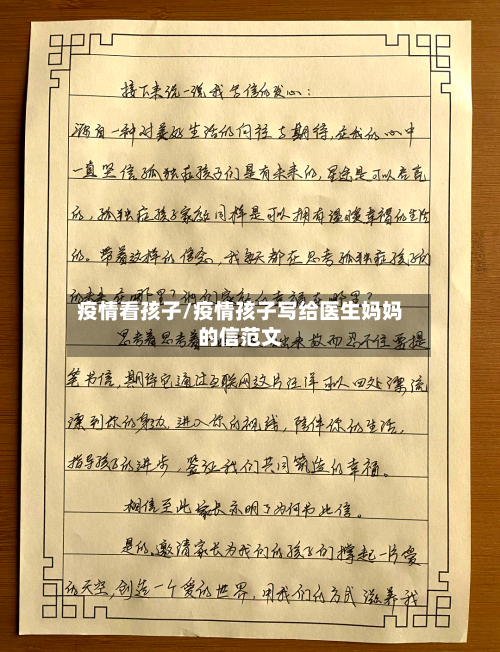 接下来说一说我写信的决心：
源自一种对美好生活的向往与期待，在我的心中
一直坚信孤独症孩子们是有未来的，星途是可以走宽
的，孤独症孩子家庭同样是可以拥有温暖幸福的生活
的。带着这样的信念，我每天都在思考孤独症孩子们
疫情看孩子/疫情孩子写给医生妈妈
的信范文
思考着思考着 出来 故而忍不住要提
笔书信，期待它通过互联网这片汪洋可以四处漂流
漂到你的身边，进入你的视线，陪伴你的生活，
指导孩子的进步，鉴证我们共同筑造的幸福。
相信至此家长亦明了为何书此信。
是的，邀请家长为我们的孩子们撑起一片爱
的天空，创造一个爱的世界，用我们的方式滋养我